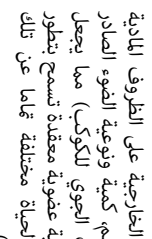 الخارجية على الظروف المادية
م، كمية ونوعية الضوء الصادر
، الجوي للكوكب) مما يجعل
ية عضوية معقدة تسمح بتطور
لحياة مختلفة تماما عن تلك